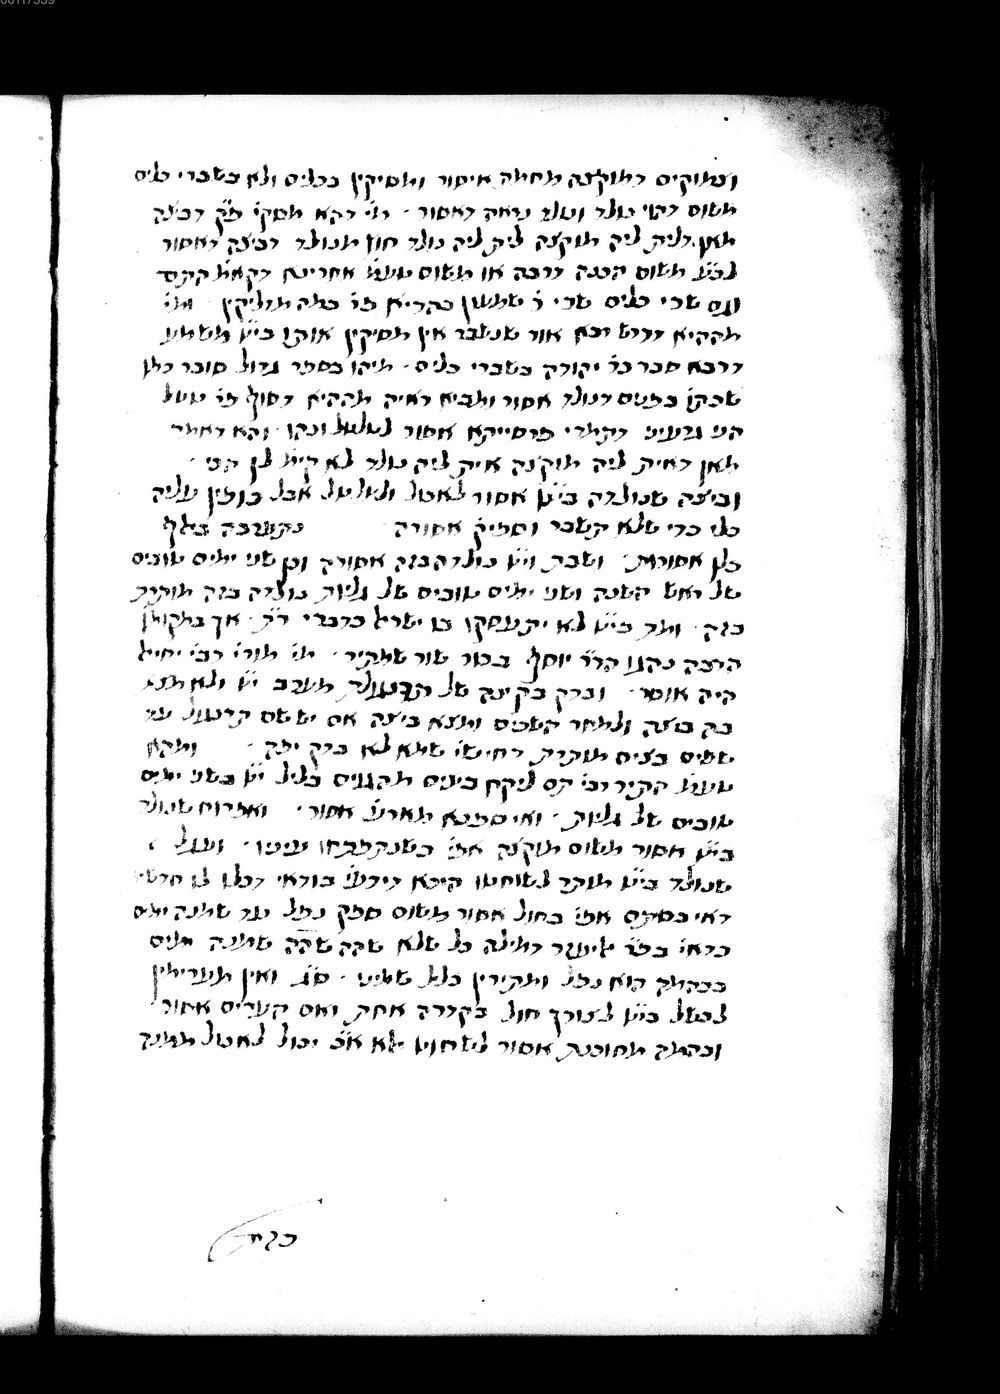 ומוקים דמוקצה מחמת איסור ומסיקין בכלים ולא בשברי כלים
משום דהוי נולד ונולד נראה דאסור · מי׳ דהא מסקי׳ פ״ק דביצה
מאן דלית ליה מוקצה לית ליה נולד חוץ מנולד דביצה דאסור
לכ״ע משום הכנה דרבה או משום טעמ׳ אחרינא דקאמ׳ התם
וגם שרי כלים שרי ר׳ שמעון בההיא פר׳ במה מדליקין · ומי׳
מההיא דדרש רבא אור שנשבר אין מסיקין אותו בי״ט משמע
דרבא סבר כר׳ יהודה בשברי כלים · מיהו בספר גדול סובר כמו
שכתו׳ בפנים דנולד אסור ומביא ראיה מההיא דסוף פר׳ נוטל
הני גרעיני דתמרי פרסייאתא אסור לטלטלונהו · והא דאמר
מאן דאית ליה מוקצה אית ליה נולד לא קיימ׳ לן הכי ·
וביצה שנולדה בי״ט אסור לאכול ולטלטל אבל כופין עליה
כלי כדי שלא תשבר וספיק׳ אסורה נתערבה באלף
כלן אסורות · ושבת וי״ט נולדה בזה אסורה וכן שני ימים טובים
של ראש השנה ושני ימים טובים של גליות נולדה בזה מותרת
בזה · ומת בי״ט לא יתעסקו בו ישראל כדברי ר״ת · אך במקומו׳
הרבה נהגו הר״ר יוסף בכור שור שמתיר · מי׳ מורי׳ רבי׳ יחיאל
היה אוסר · ובדק בקינה של תרנגולת מערב י״ט ולא מצא
בה ביצה ולמחר השכים ומצא ביצה אם יש שם תרנגול עד
שתים בצים מותרת דחיישי׳ שמא לא בדק יפה · ומהא
טעמ׳ התיר רבי׳ תם ליקח ביצים מהגוים בליל י״ט בשני ימים
טובים של גליות · ואי ספנא מארעא אסור · ואפרוח שנולד
בי״ט אסור משום מוקצה אפי׳ כשנתפתחו עיניו · ועגל
שנולד בי״ט מותר לשוחטו היכא דידעי׳ בודאי דכלו לו חדשיו
דאי בספק אפי׳ בחול אסור משום ספק נפל עד שמנה ימים
כדאי׳ בפ׳ר׳ אליעזר דמילה כל שלא שהה שמנה ימים
בבהמה הוא נפל ומתירין כליל שמיני · ואין מערימין
לבשל בי״ט לצורך חול בקדרה אחת ואם הערים אסור
ובהמה מסוכנת אסור לשחוט אלא א״כ יכול לאכול ממנה
כזית